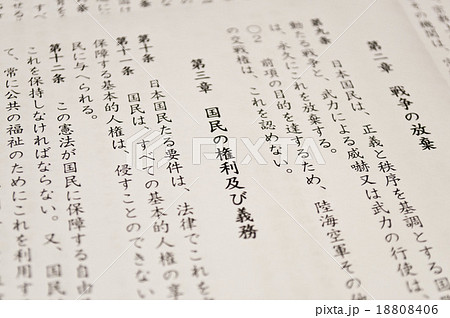 第二章　戦争の放棄
第九条　日本国民は、正義と秩序を基調とする国
動たる戦争と、武力による威嚇又は武力の行使は、
は、永久にこれを放棄する。
〇２　前項の目的を達するため、陸海空軍その他
の交戦権は、これを認めない。
第三章　国民の権利及び義務
第十条　日本国民たる要件は、法律でこれを
第十一条　国民は、すべての基本的人権の享
保障する基本的人権は、侵すことのできない
民に与へられる。
第十二条　この憲法が国民に保障する自由
これを保持しなければならない。又、国民
て、常に公共の福祉のためにこれを利用す
pixta
18808406